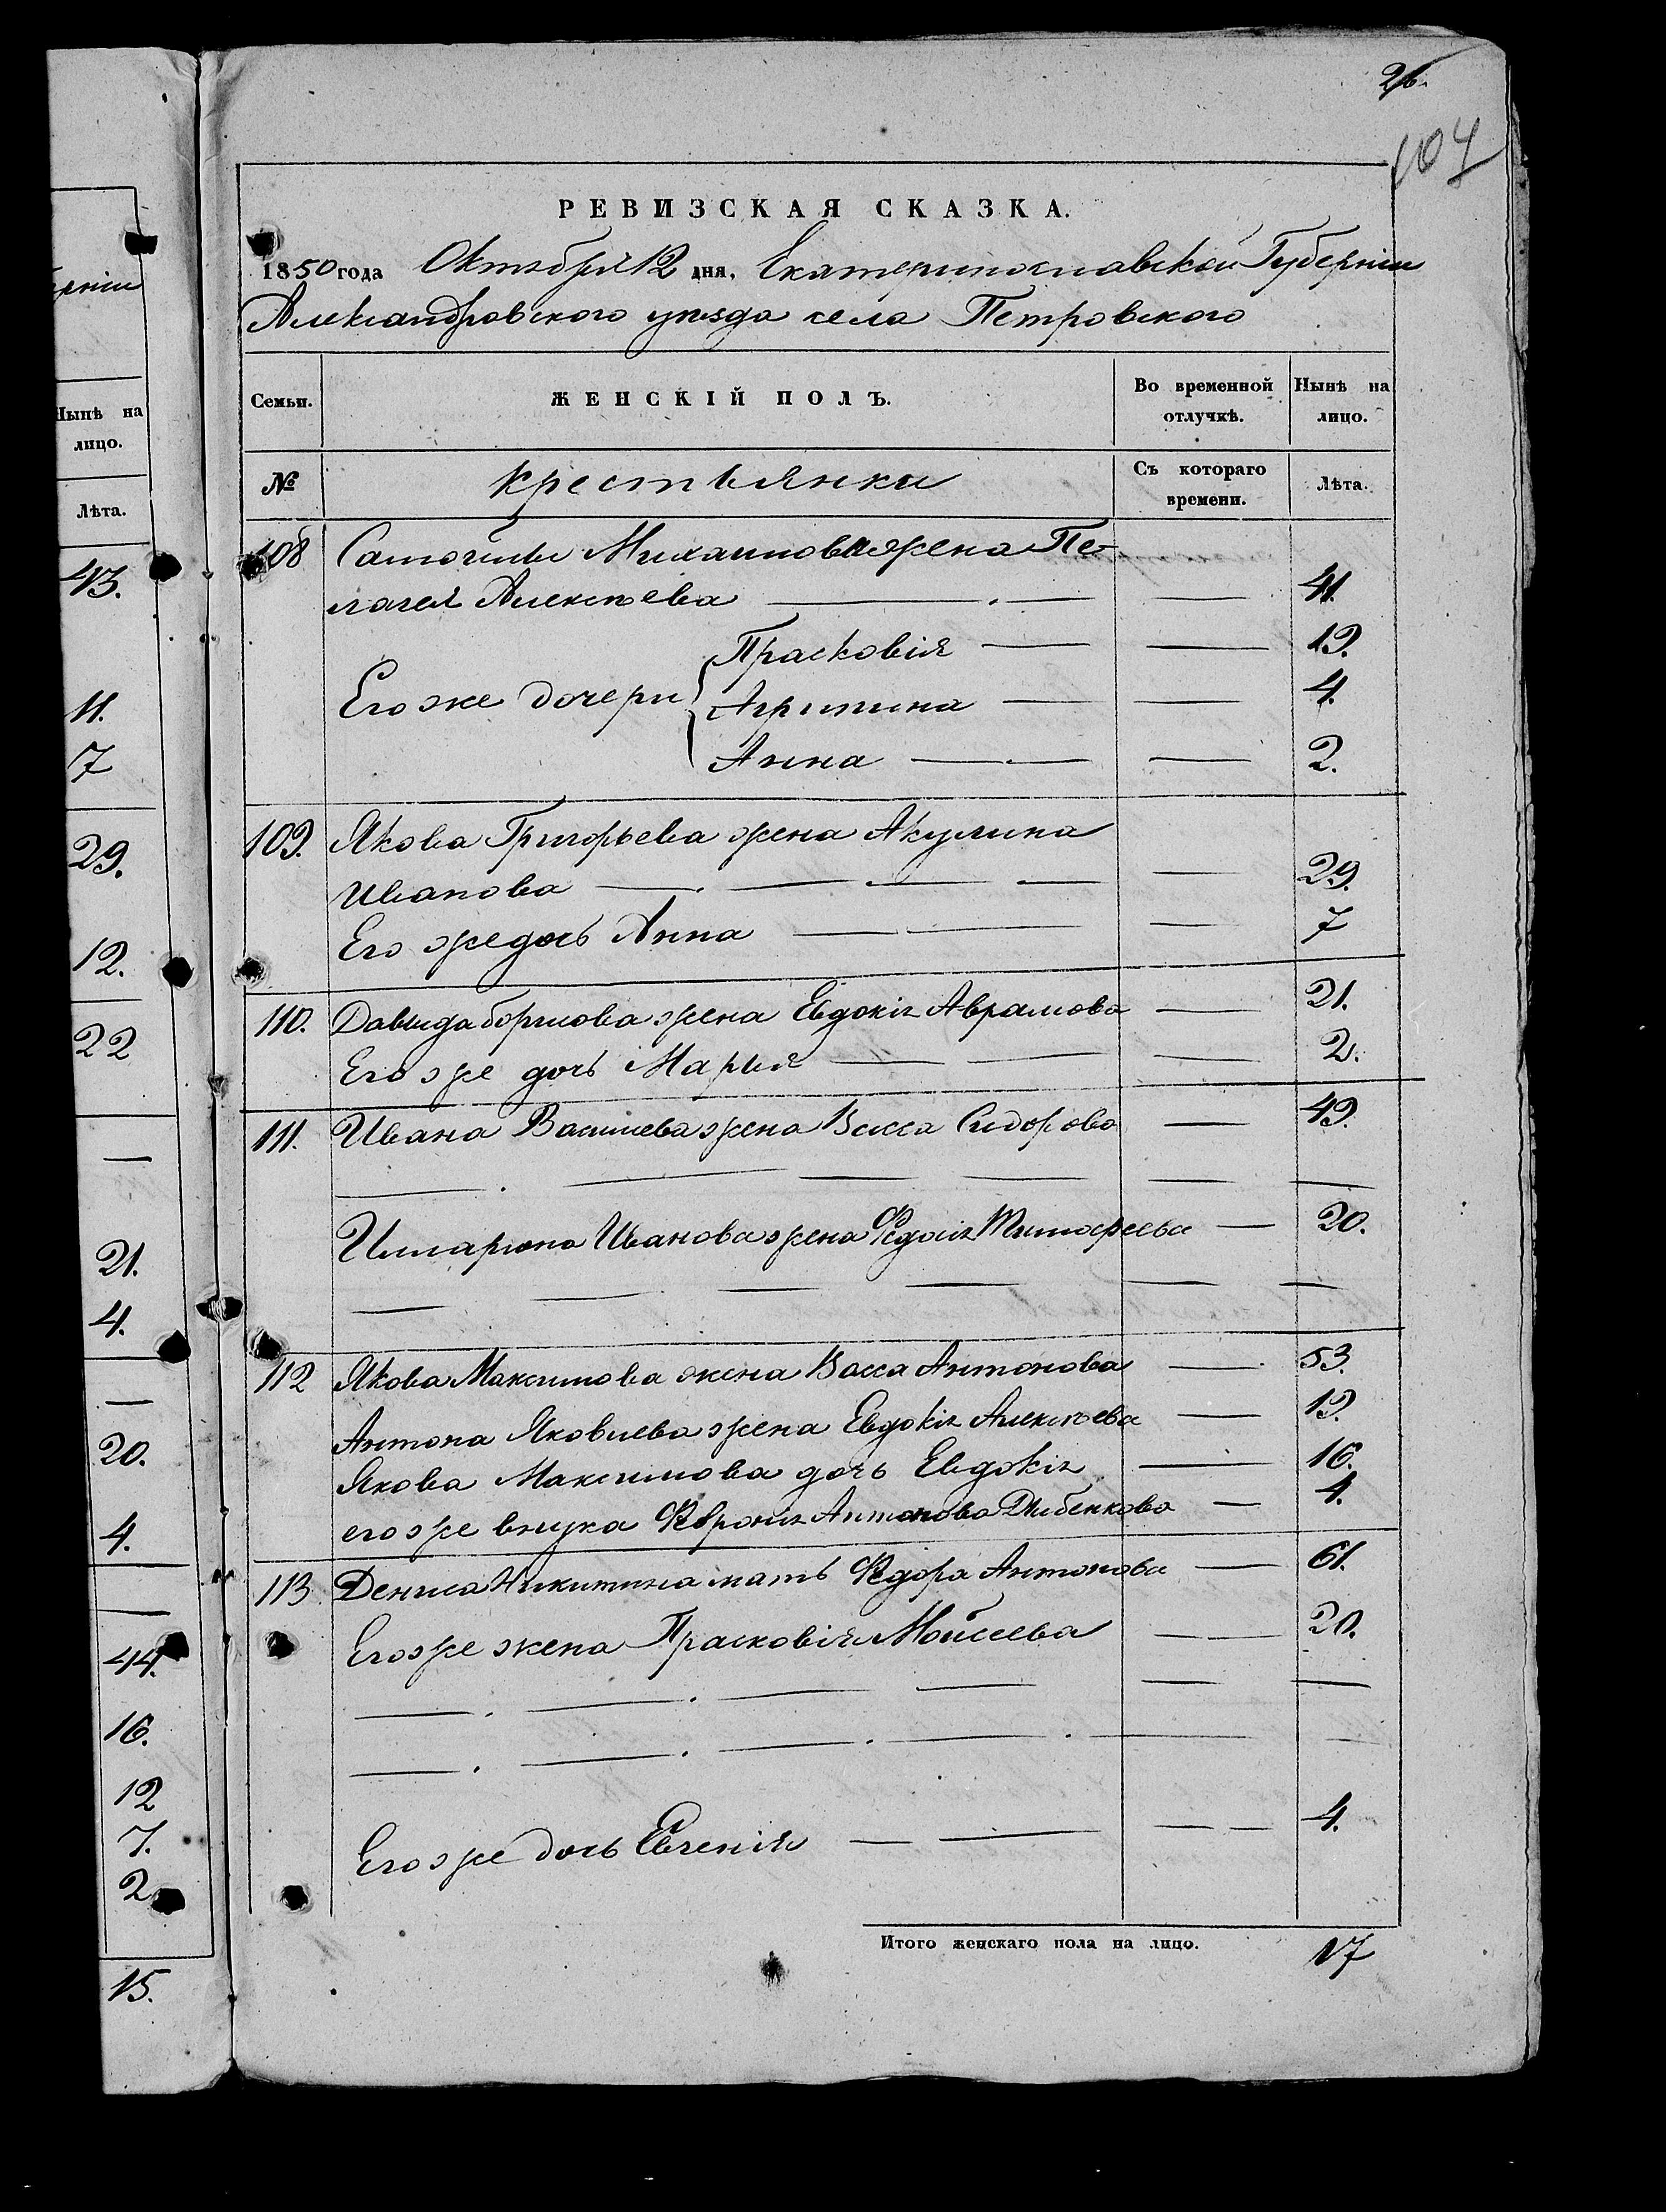 26.
104
РЕВИЗСКАЯ СКАЗКА.
1850 года Октября 12 дня, Екатеринославской Губерніи
Александровского уѣзда села Петровского
Семьи.
ЖЕНСКІЙ ПОЛЪ.
Во временной отлучкѣ.
Нынѣ на лицо.
№
крестьянки
Съ котораго времени.
Лѣта.
108 Самойлы Михайлова жена Пе-
лагея Алексѣева — — — 41.
Прасковія — — 19.
Его же дочери Агрипина — — 4.
Анна — — — 2.
109. Якова Григорьева жена Акулина
Иванова — — — — — 29.
Его же дочь Анна — — — 7
110. Давыда Борисова жена Евдокія Аврамова — 21.
Его же дочь Марья — — — 2.
111. Ивана Васильева жена Васса Сидорова — 49.
— — — — — —
Иллариона Иванова жена Федосія Тимофеева — 20.
— — — — — —
112 Якова Максимова жена Васса Антонова — 53.
Антона Яковлева жена Евдокія Алексѣева — 19.
Якова Максимова дочь Евдокія — 16.
его же внука Февронія Антонова — 4.
113 Дениса Никитина мать Федора Антонова — 61.
Его же жена Прасковія Мойсеева — — 20.
— — — — — —
— — — — — —
Его же дочь Евгенія — — — — 4.
Итого женскаго пола на лицо. 17
ерніи
Нынѣ на
лицо.
Лѣта.
43.
11.
7
29.
12.
22
—
21.
4.
—
20.
4.
—
44.
16.
12
7.
2
15.